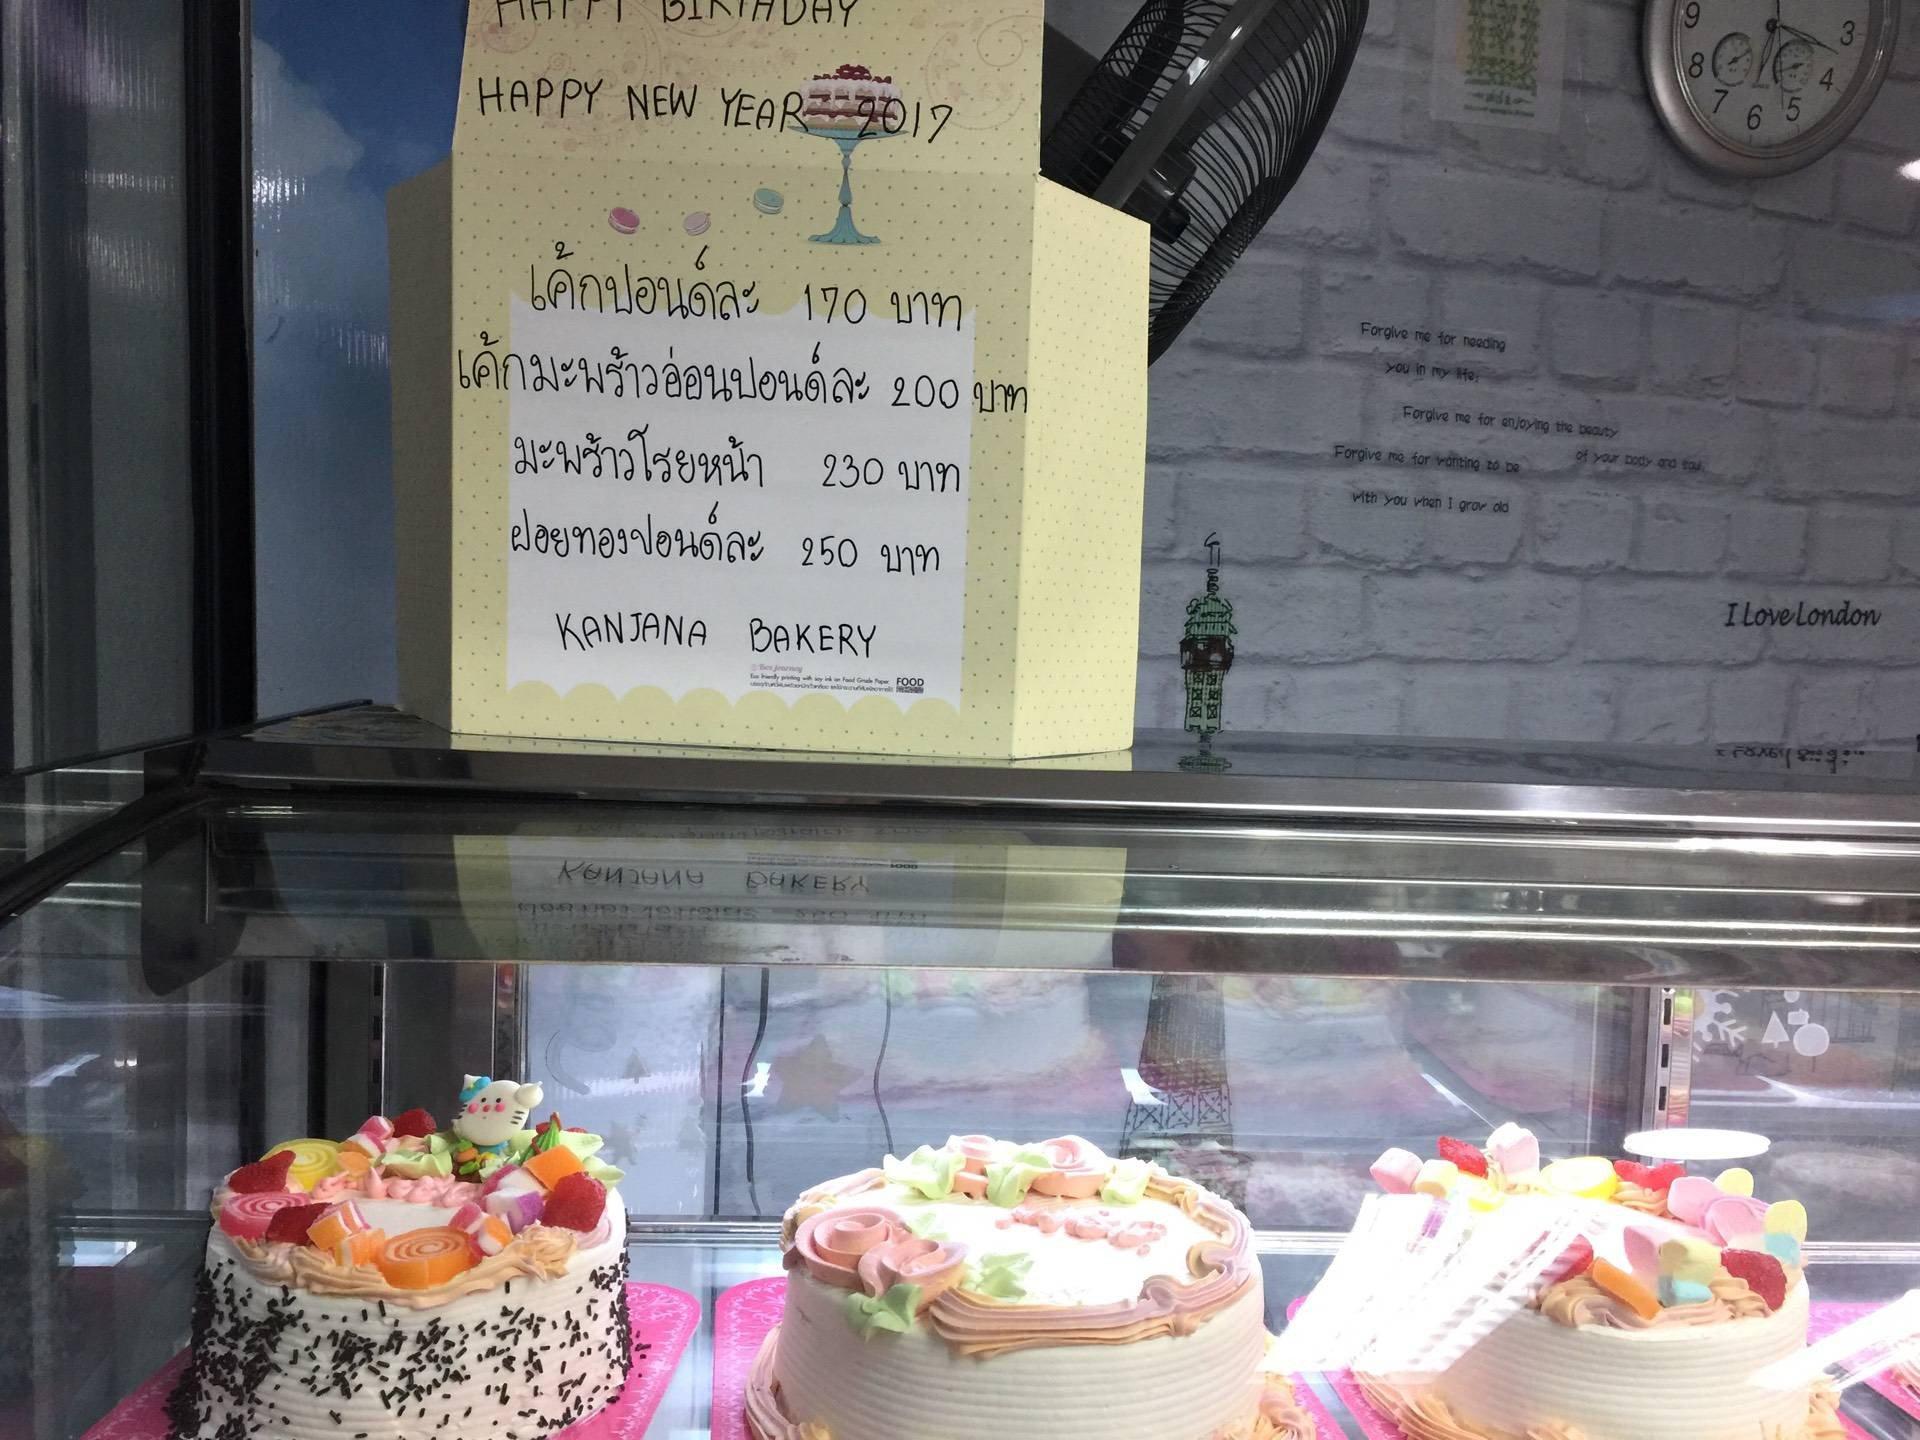 HAPPY BIRTHDAY
HAPPY NEW YEAR 2017
เค้กปอนด์ละ 170 บาท
เค้กมะพร้าวอ่อนปอนด์ละ 200 บาท
มะพร้าวโรยหน้า 230 บาท
ฝอยทองปอนด์ละ 250 บาท
KANJANA BAKERY
Box Journey
Eco friendly printing with soy ink on Food Grade Paper.
FOOD
9
3
8
4
7
6
5
Forgive me for needing
you in my life;
Forgive me for enjoying the beauty
of your body and soul;
Forgive me for wanting to be
with you when I grow old
I Love London